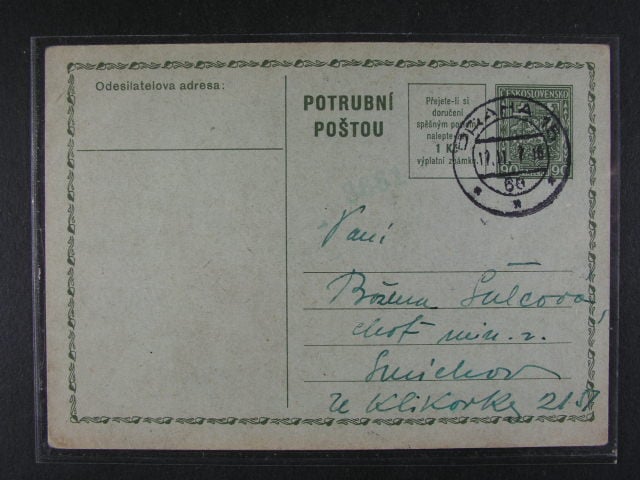 Odesilatelova adresa:
POTRUBNÍ
POŠTOU
Přejete-li si
doručení
spěšným
nalepte
1 Kč
výplatní známku.
ČESKOSLOVENSKO
90 90
PRAHA 15
17.II. 7-18
60
Paní
Božena Šulcová
choť min. r.
Smichov
U Klikovky 21